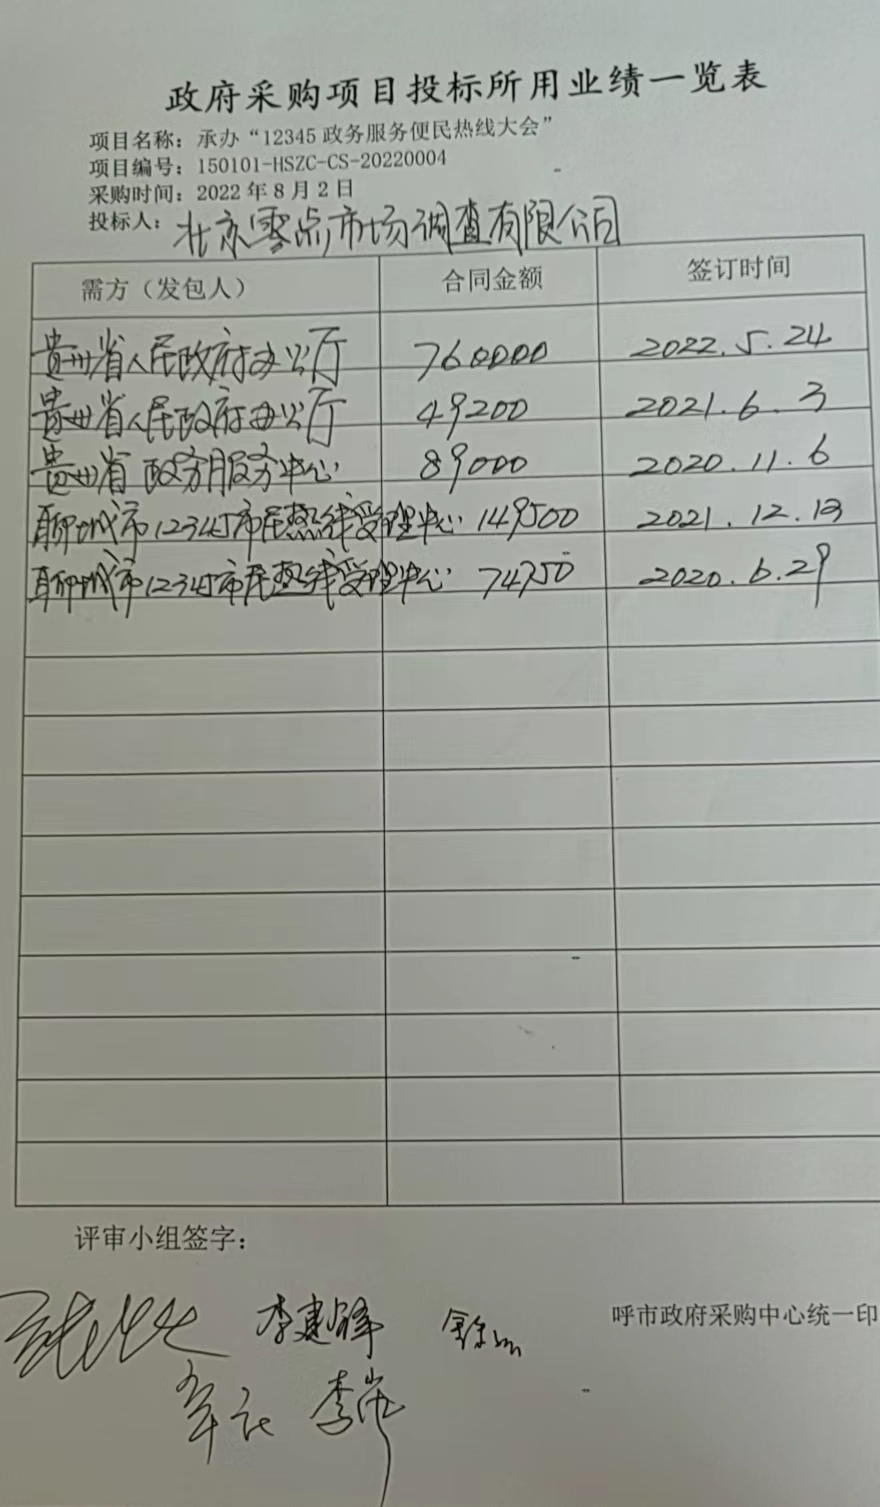 政府采购项目投标所用业绩一览表
项目名称：承办“12345政务服务便民热线大会”
项目编号：150101-HSZC-CS-20220004
采购时间：2022年8月2日
投标人：北京零点市场调查有限公司
需方（发包人） 合同金额 签订时间
贵州省人民政府办公厅 760000 2022.5.24
贵州省人民政府办公厅 49200 2021.6.3
贵州省政务服务中心 89000 2020.11.6
聊城市12345市民热线受理中心 149500 2021.12.13
聊城市12345市民热线受理中心 74750 2020.6.29
评审小组签字：
呼市政府采购中心统一印
李建锋